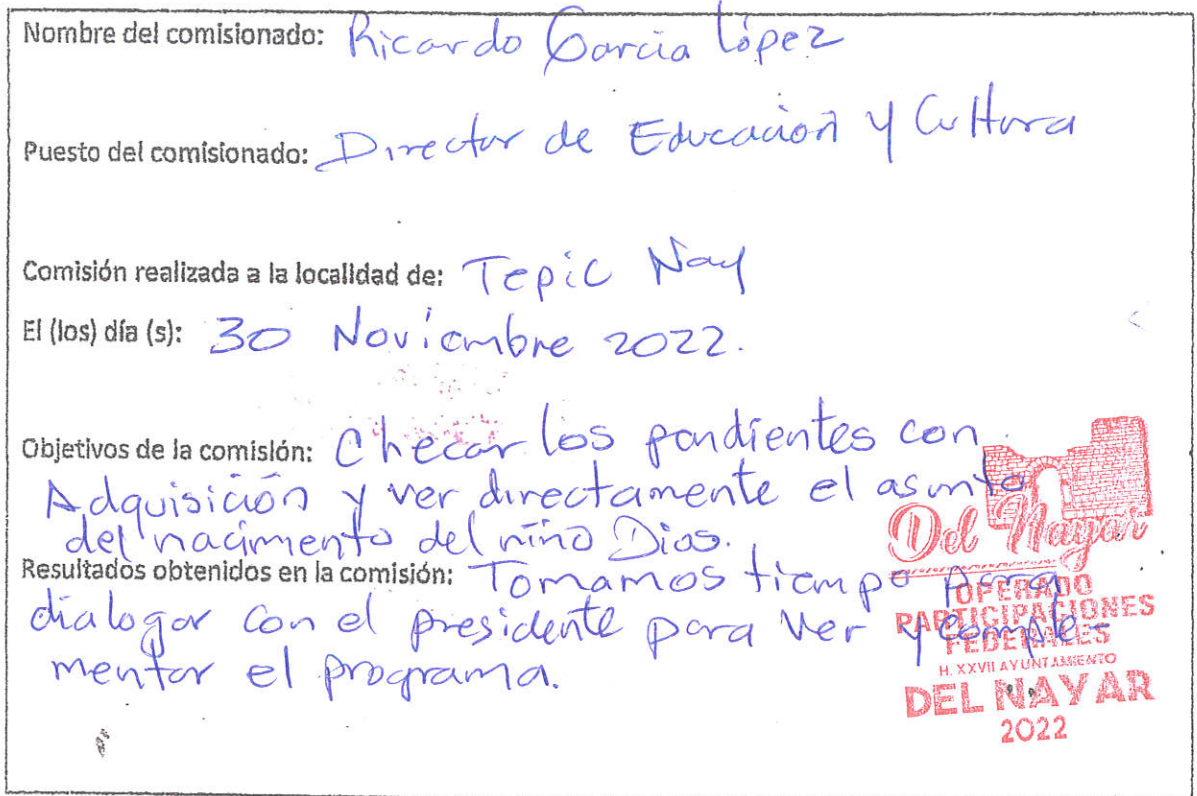 Nombre del comisionado: Ricardo García López
Puesto del comisionado: Director de Educación y Cultura
Comisión realizada a la localidad de: Tepic Nay
El (los) día (s): 30 Noviembre 2022.
Objetivos de la comisión: Checar los pendientes con
Adquisición y ver directamente el asunto
del nacimiento del niño Dios.
Resultados obtenidos en la comisión: Tomamos tiempo para
dialogar con el presidente para ver y comple-
mentar el programa.
Del Nayar
OPERADO
PARTICIPACIONES
FEDERALES
H. XXVII AYUNTAMIENTO
DEL NAYAR
2022